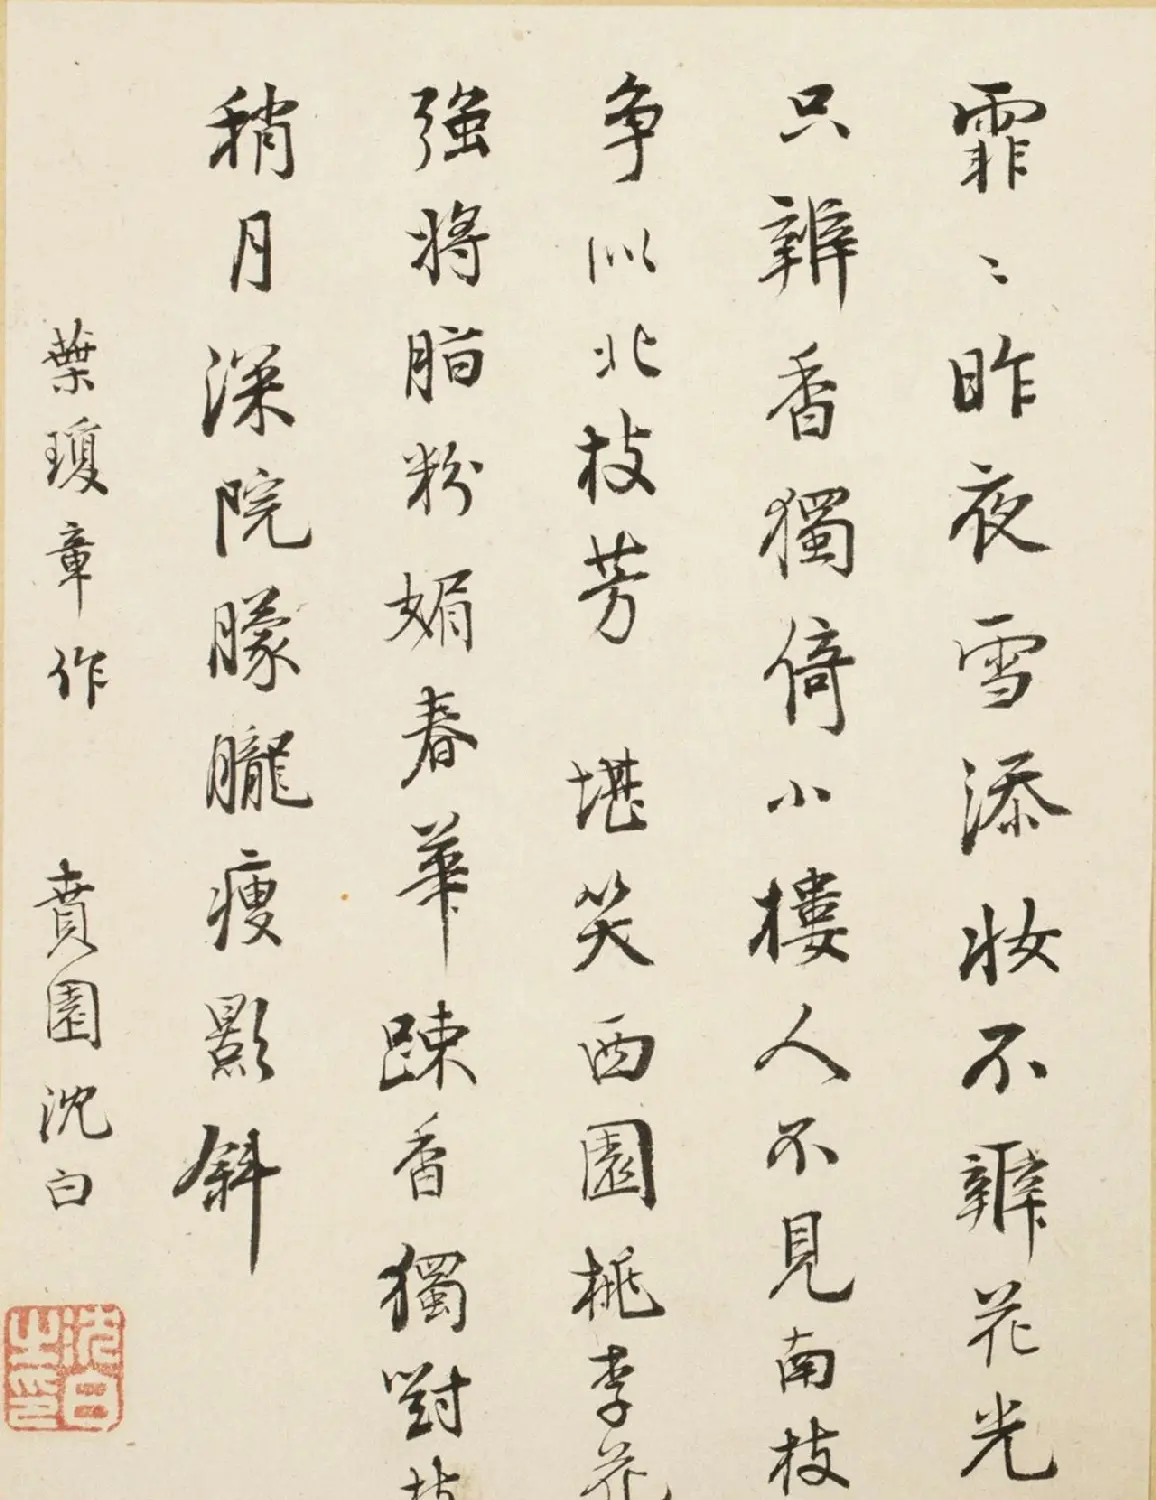 霏〻昨夜雪添妝不辨花光
只辨香獨倚小樓人不見南枝
争似北枝芳 堪笑西園桃李花
強將脂粉媚春華踈香獨對枝
稍月深院朦朧瘦影斜
葉瓊章作 賁園沈白
沈白之印